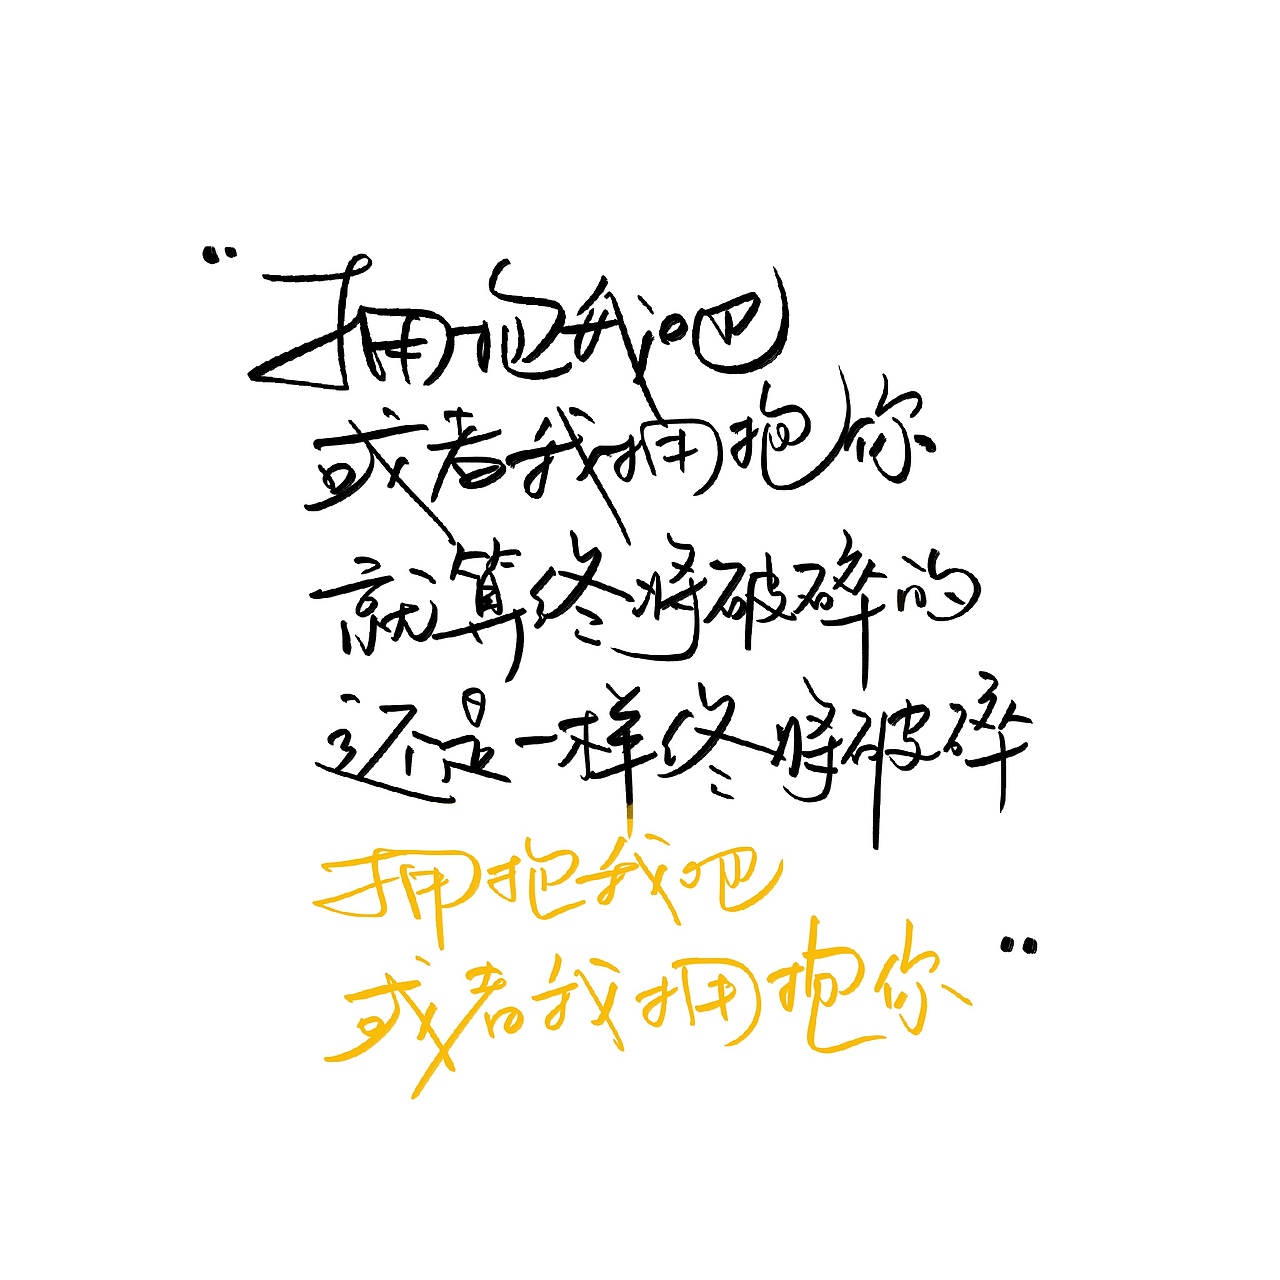 "拥抱我吧
或者我拥抱你
就算终将破碎的
还是一样终将破碎
拥抱我吧
或者我拥抱你"